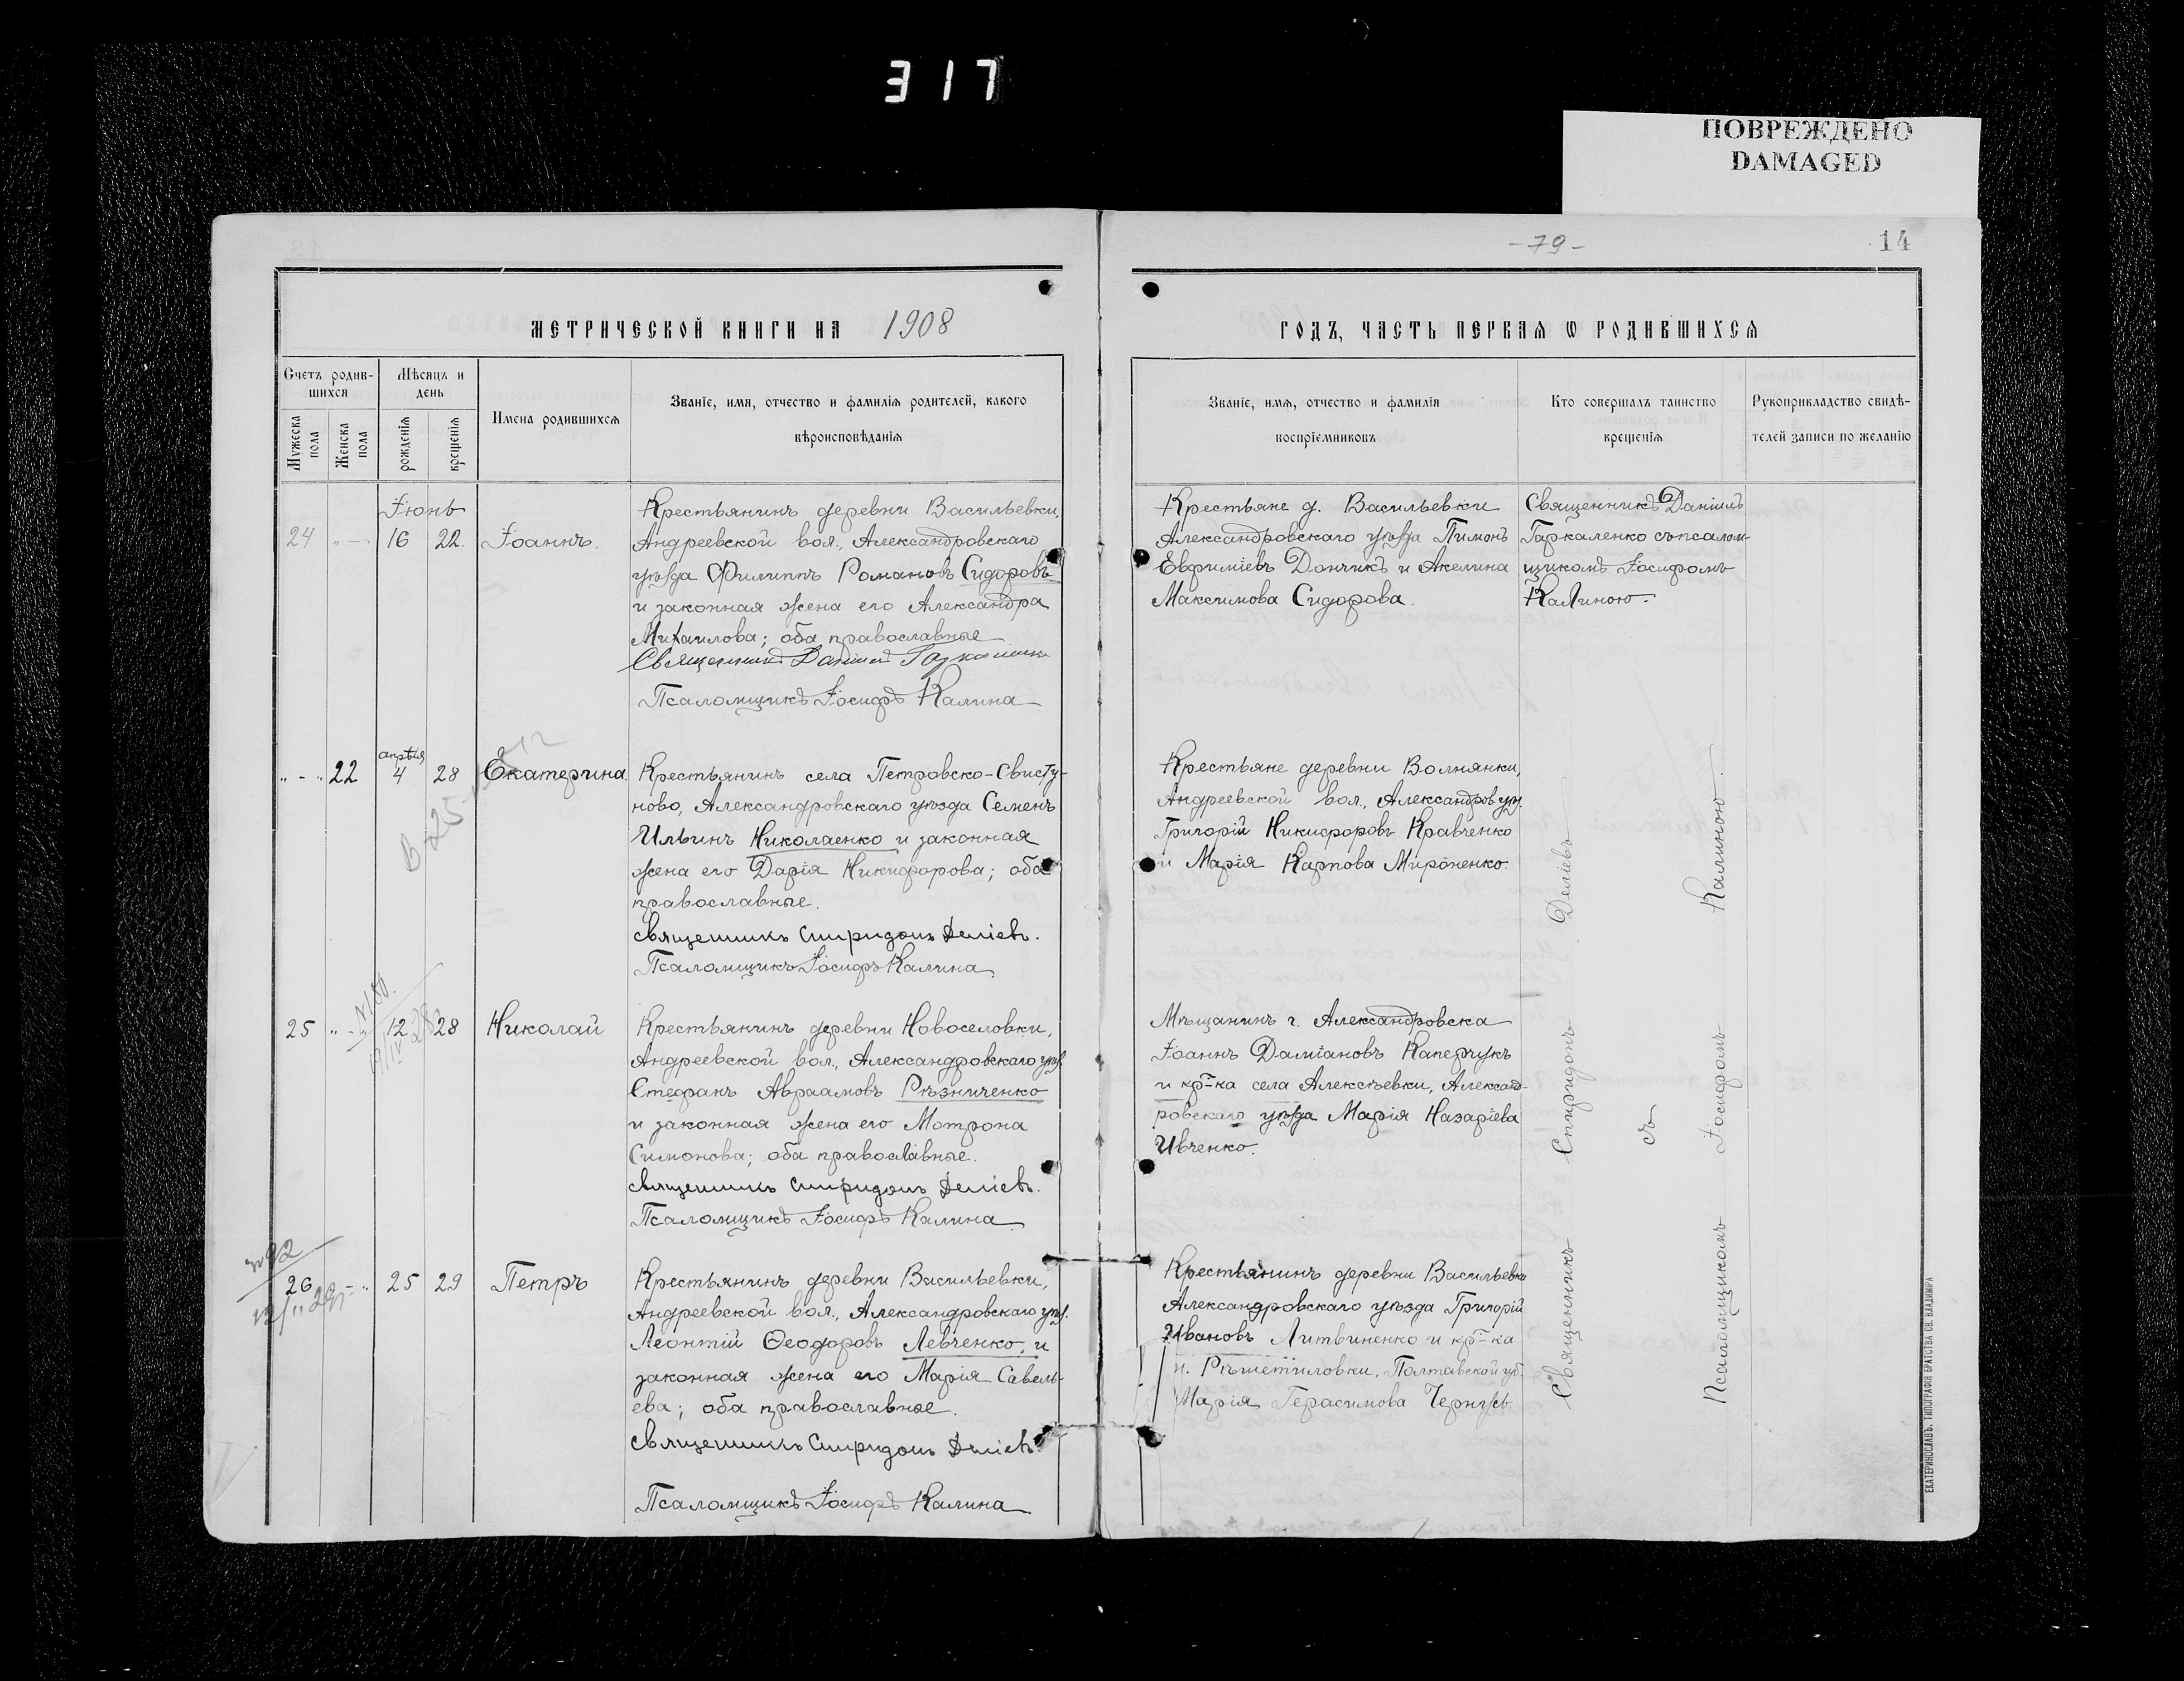 317
ПОВРЕЖДЕНО
DAMAGED
-79-
14
МЕТРИЧЕСКОЙ КНИГИ НА 1908
ГОДЪ, ЧАСТЬ ПЕРВАЯ Ѡ РОДИВШИХСЯ
Счетъ родив-
шихся
Мужеска пола
Женска пола
Мѣсяцъ и
день
рожденія
крещенія
Имена родившихся
Званіе, имя, отчество и фамилія родителей, какого
вѣроисповѣданія
Званіе, имя, отчество и фамилія
воспріемниковъ
Кто совершалъ таинство
крещенія
Рукоприкладство свидѣ-
телей записи по желанію
Іюнь
24 " — " 16 22. Іоаннъ.
Крестьянинъ деревни Васильевки,
Андреевской вол., Александровскаго
уѣзда Филиппъ Романовъ Сидоровъ
и законная жена его Александра
Михаилова; оба православные
Священникъ Даніилъ Гаркаленко
Псаломщикъ Іосифъ Калина
Крестьяне д. Васильевки
Александровскаго уѣзда Пимонъ
Евфиміевъ Дончикъ и Акелина
Максимова Сидорова.
Священникъ Даніилъ
Гаркаленко съ псалом-
щикомъ Іосифомъ
Калиною.
апрѣля
" - " 22 4 28 Екатерина.
Крестьянинъ села Петровско-Свисту-
ново, Александровскаго уѣзда Семенъ
Ильинъ Николаенко и законная
жена его Дарія Никифорова; оба
православные.
священникъ Спиридонъ Деліевъ.
Псаломщикъ Іосифъ Калина
Крестьяне деревни Волнянки,
Андреевской вол., Александров. уѣз.
Григорій Никифоровъ Кравченко
и Марія Карпова Мироненко.
25 " - " 12 28 Николай
Крестьянинъ деревни Новоселовки,
Андреевской вол., Александровскаго уѣз.
Стефанъ Авраамовъ Рѣзниченко
и законная жена его Мотрона
Симонова; оба православные.
священникъ Спиридонъ Деліевъ.
Псаломщикъ Іосифъ Калина
Мѣщанинъ г. Александровска
Іоаннъ Даміановъ Каперчукъ
и кр-ка села Алексѣевки, Александ-
ровскаго уѣзда Марія Назаріева
Ивченко.
26 - " 25 29 Петръ
Крестьянинъ деревни Васильевки,
Андреевской вол., Александровскаго уѣз.
Леонтій Ѳеодоровъ Левченко, и
законная жена его Марія Савель-
ева; оба православные.
священникъ Спиридонъ Деліевъ.
Псаломщикъ Іосифъ Калина
Крестьянинъ деревни Васильевки
Александровскаго уѣзда Григорій
Ивановъ Литвиненко и кр-ка
м. Рѣшетиловки, Полтавской губ.
Марія Герасимова
Священникъ Спиридонъ Деліевъ
съ
Псаломщикомъ Іосифомъ Калиною.
ЕКАТЕРИНОСЛАВЪ. ТИПОГРАФІЯ БРАТСТВА СВ. ВЛАДИМІРА